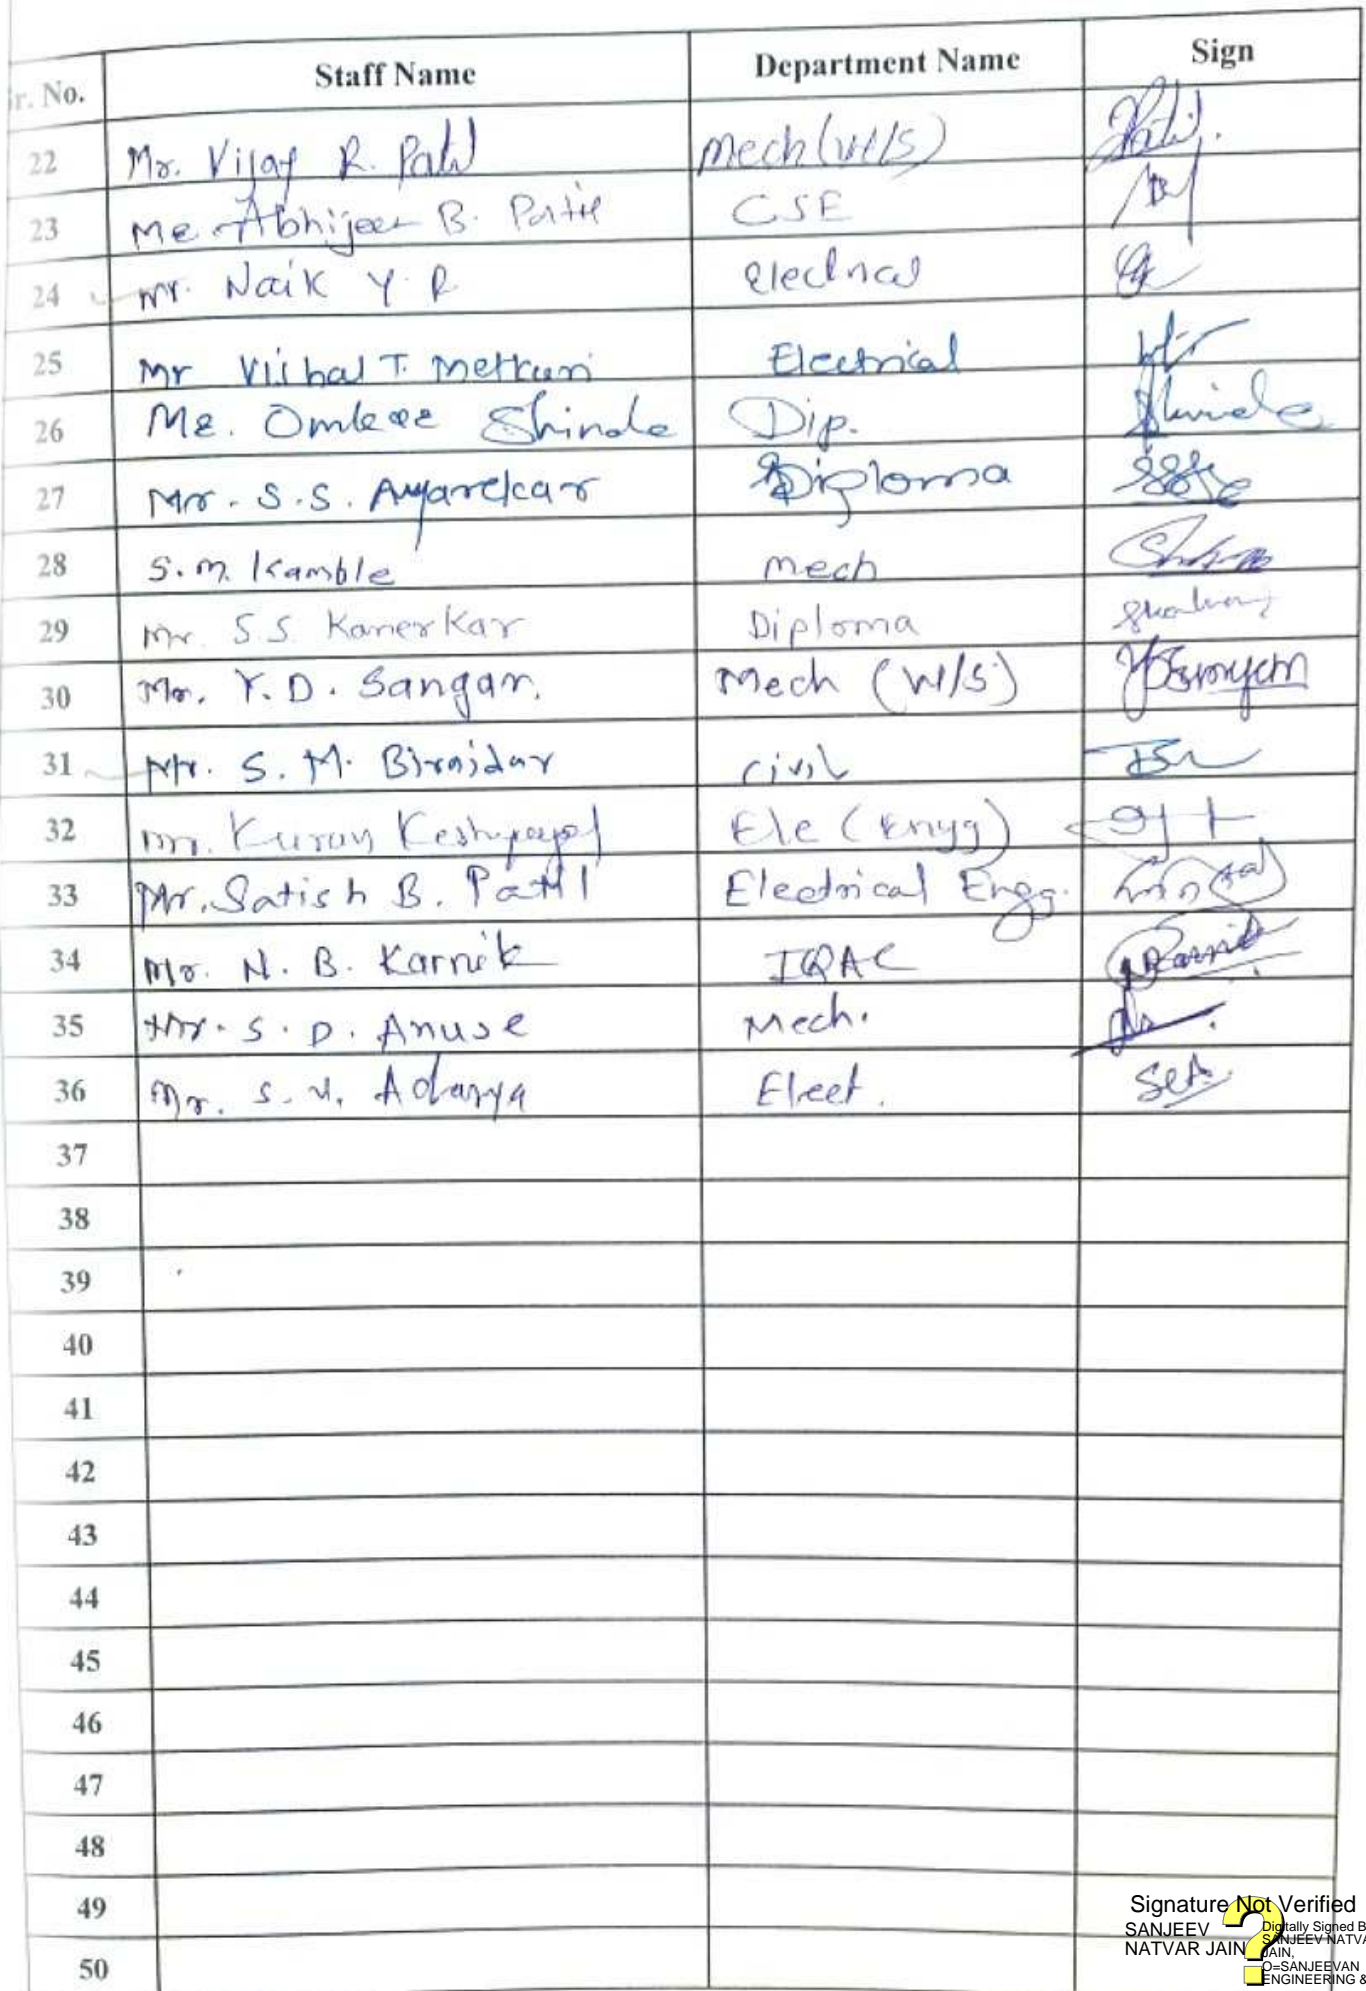 r. No. Staff Name Department Name Sign
22 Mr. Vijay R. Patil Mech (W/S) Patil.
23 Mr. Abhijeet B. Patil CSE
24 Mr. Naik Y. R Electrical
25 Mr Vishal T. Metkari Electrical
26 Mr. Omkar Shinde Dip. Shinde
27 Mr. S.S. Ayarekar Diploma
28 S.M. Kamble Mech
29 Mr. S.S. Kanerkar Diploma
30 Mr. Y.D. Sangar. Mech (W/S)
31 Mr. S. M. Birajdar civil
32 Mr. Ele (Engg)
33 Mr. Satish B. Patil Electrical Engg.
34 Mr. N. B. Karnik IQAC Karnik
35 Mr. S. D. Anuse Mech.
36 Mr. S. V. Elect.
37
38
39
40
41
42
43
44
45
46
47
48
49
50
Signature Not Verified
SANJEEV
NATVAR JAIN
Digitally Signed B
SANJEEV NATVA
JAIN,
O=SANJEEVAN
ENGINEERING &